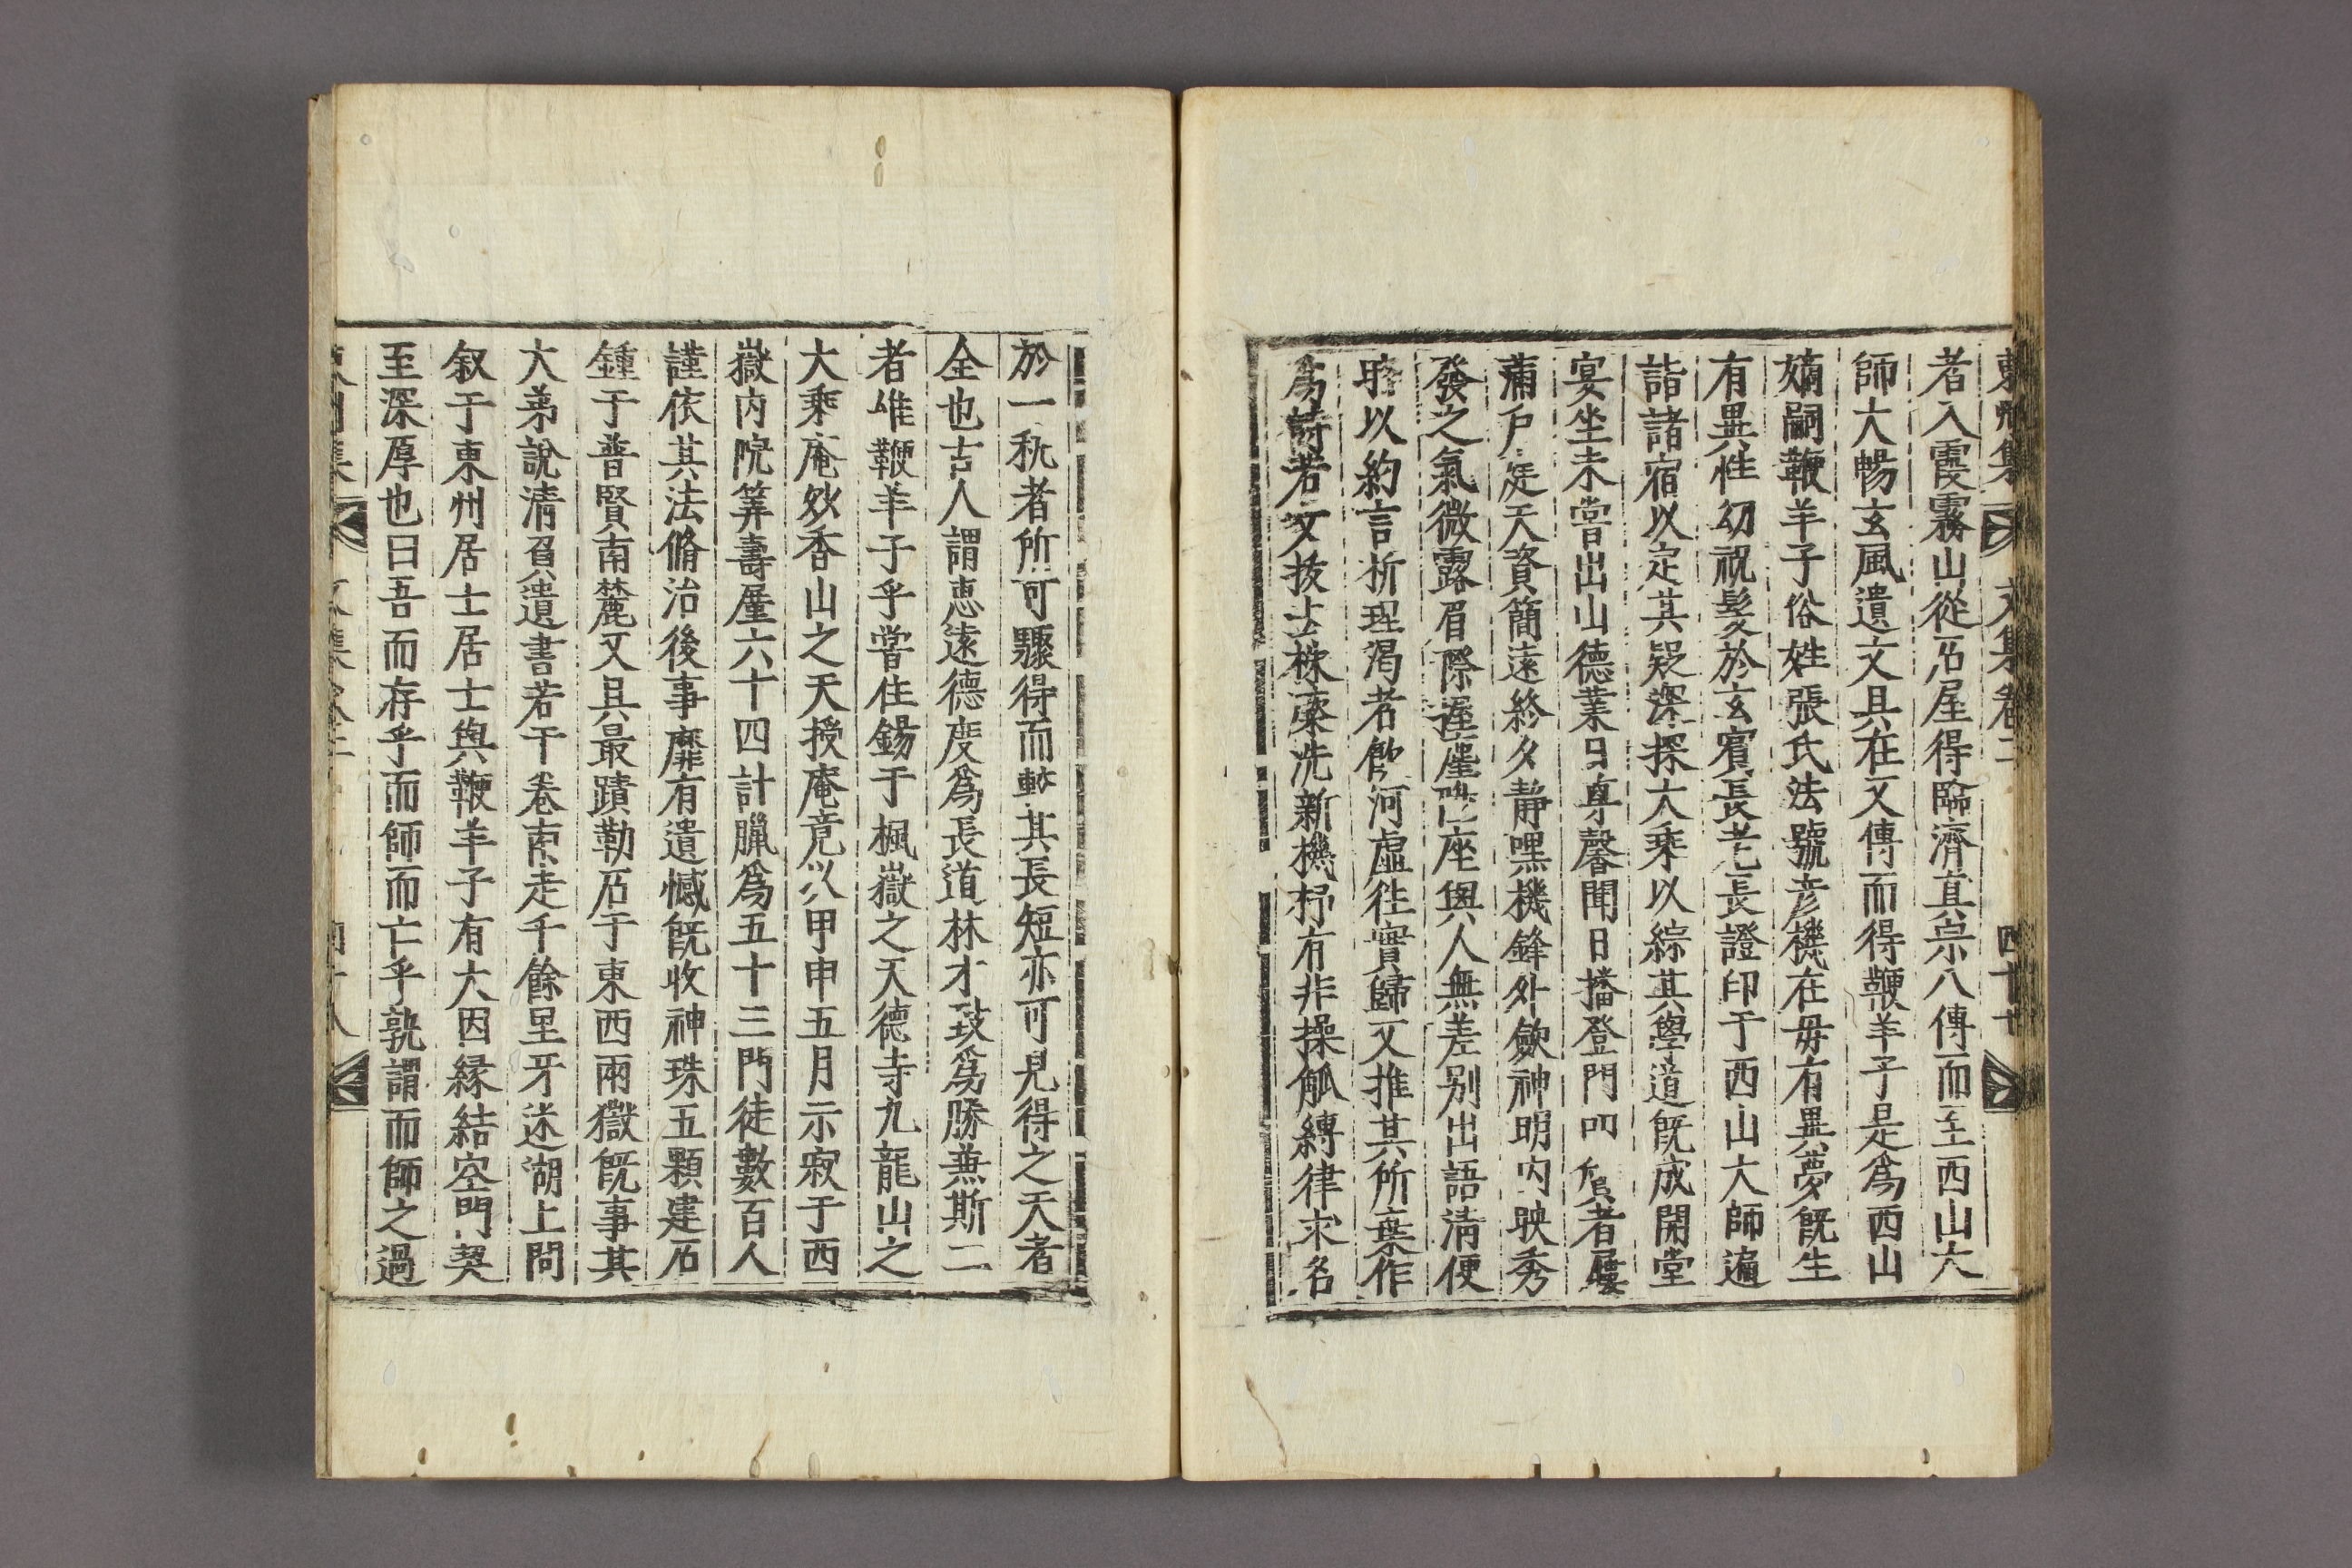 東州集 文集卷二 四十七
者入霞霧山從石屋得臨濟眞宗八傳而至西山大
師大暢玄風遺文具在又傳而得鞭羊子是爲西山
嫡嗣鞭羊子俗姓張氏法號彦機在毋有異夢既生
有異性幼祝髮於玄賓長老長證印于西山大師遍
詣諸宿以定其疑深探大乘以綜其學道既成開堂
宴坐未嘗出山德業日阜馨聞日播登門叩者屨
蒲户庭天資簡遠終夕靜嘿機鋒外歛神明内映秀
發之氣微露眉際座與人無差别出語清便
以約言析理渴者飮河虚徃實歸又推其所棄作
爲詩若文拔去株藁洗新機杼有非操觚縛律求名
於一秇者所可驟得而其長短亦可見得之天者
全也古人謂惠遠德度爲長道林才致爲勝兼斯二
者唯鞭羊子乎嘗住錫于楓嶽之天德寺九龍山之
大乘庵妙香山之天授庵竟以甲申五月示寂于西
嶽内院筭壽屢六十四計臘爲五十三門徒數百人
謹依其法脩治後事靡有遺憾既收神珠五顆建石
鍾于普賢南麓又具最蹟勒石于東西兩嶽既事其
大弟說清負遺書若干卷南走千餘里牙迷湖上問
叙于東州居士居士與鞭羊子有大因縁結空門契
至深厚也曰吾而存乎而師而亡乎孰謂而師之過